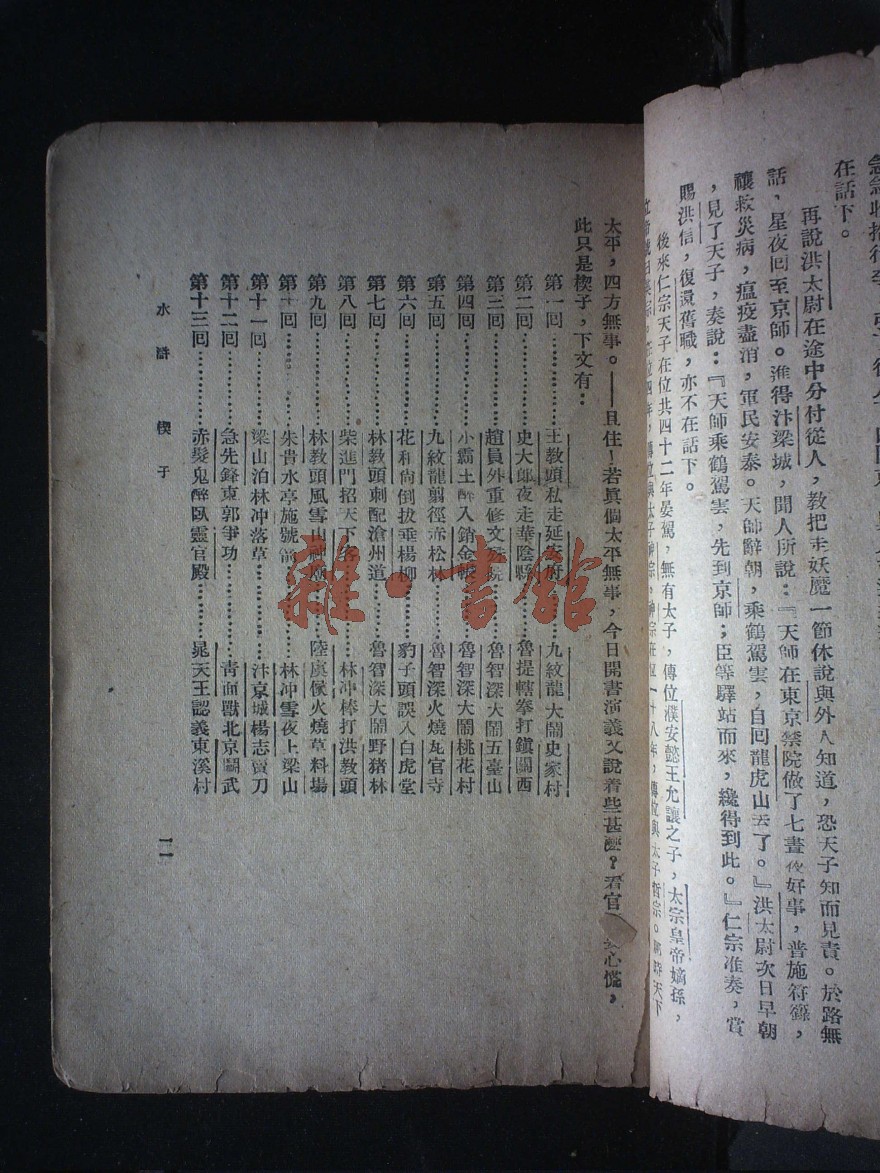 在話下。
再說洪太尉在途中分付從人，教把走妖魔一節休說與外人知道，恐天子知而見責。於路無
話，星夜回至京師。進得汴梁城，聞人所說：『天師在東京禁院做了七晝夜好事，普施符籙，
禳救災病，瘟疫盡消，軍民安泰。天師辭朝，乘鶴駕雲，自回龍虎山去了。』洪太尉次日早朝
，見了天子，奏說：『天師乘鶴駕雲，先到京師；臣等驛站而來，纔得到此。』仁宗准奏，賞
賜洪信，復還舊職，亦不在話下。
後來仁宗天子在位共四十二年晏駕，無有太子，傳位濮安懿王允讓之子，太宗皇帝嫡孫，
太平，四方無事。——且住！若眞個太平無事，今日開書演義又說着些甚麼？看官 心慌，
此只是楔子，下文有：
第一回 王教頭私走延安府 九紋龍大鬧史家村
第二回 史大郎夜走華陰縣 魯提轄拳打鎮關西
第三回 趙員外重修文殊院 魯智深大鬧五臺山
第四回 小霸王醉入銷金帳 魯智深大鬧桃花村
第五回 九紋龍剪徑赤松林 魯智深火燒瓦官寺
第六回 花和尙倒拔垂楊柳 豹子頭誤入白虎堂
第七回 林教頭刺配滄州道 魯智深大鬧野猪林
第八回 柴進門招天下客 林冲棒打洪教頭
第九回 林教頭風雪山神廟 陸虞候火燒草料場
第十回 朱貴水亭施號箭 林冲雪夜上梁山
第十一回 梁山泊林冲落草 汴京城楊志賣刀
第十二回 急先鋒東郭爭功 靑面獸北京鬭武
第十三回 赤髮鬼醉臥靈官殿 晁天王認義東溪村
水滸 楔子 一一
雜·書館